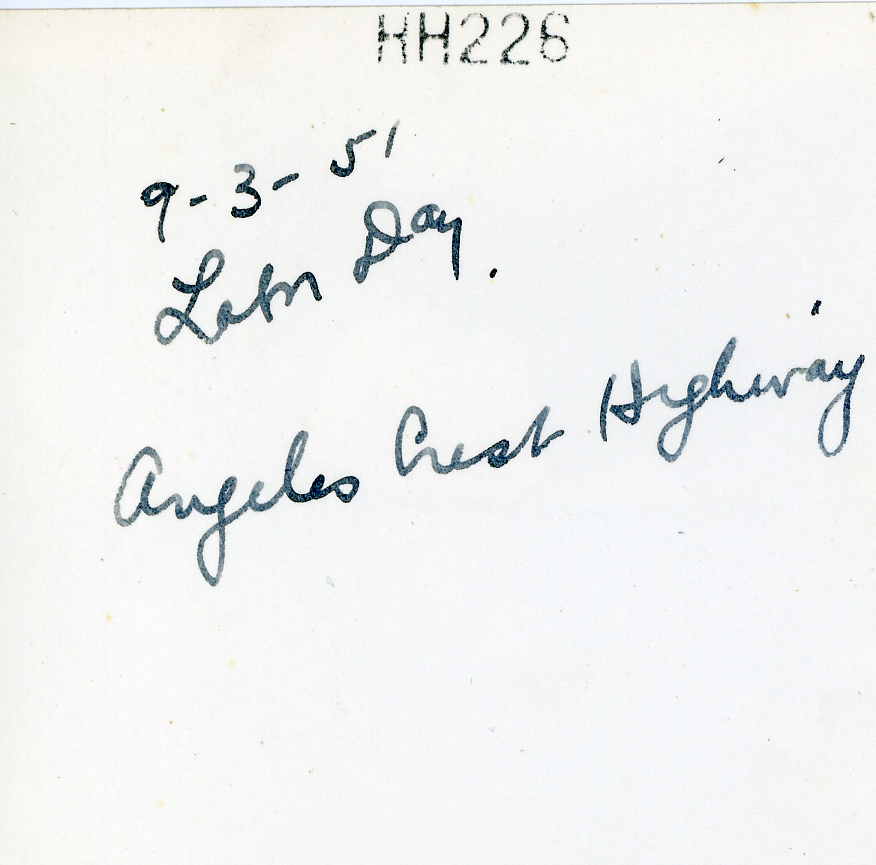 HH226
9-3-51
Labor Day.
Angeles Crest Highway